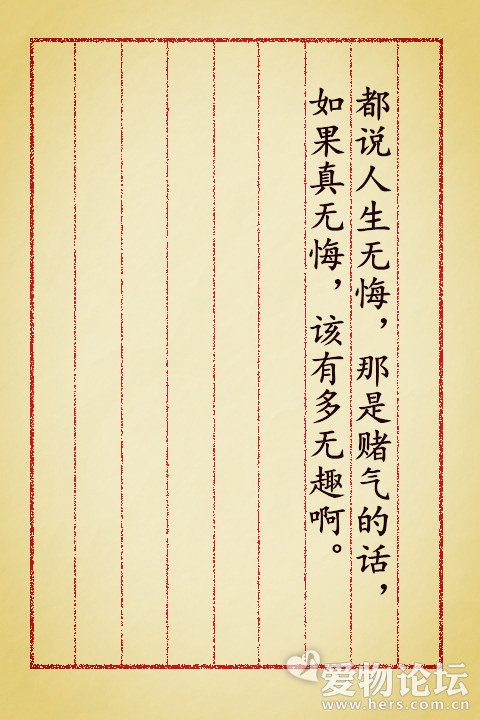 都说人生无悔，那是赌气的话，
如果真无悔，该有多无趣啊。
爱物论坛
www.hers.com.cn